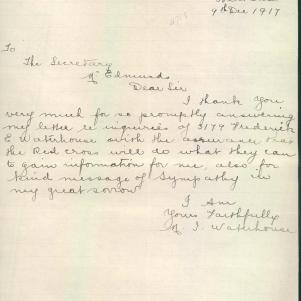 9th Dec 1917
To
The Secretary
Mr Edmunds
Dear Sir
I thank you
very much for so promptly answering
my letter re inquiries of 3179 Frederick
E Waterhouse with the assurance that
the Red Cross will do what they can
to gain information for me, also for
kind message of Sympathy in
my great sorrow
I Am
Yours Faithfully
M. J. Waterhouse